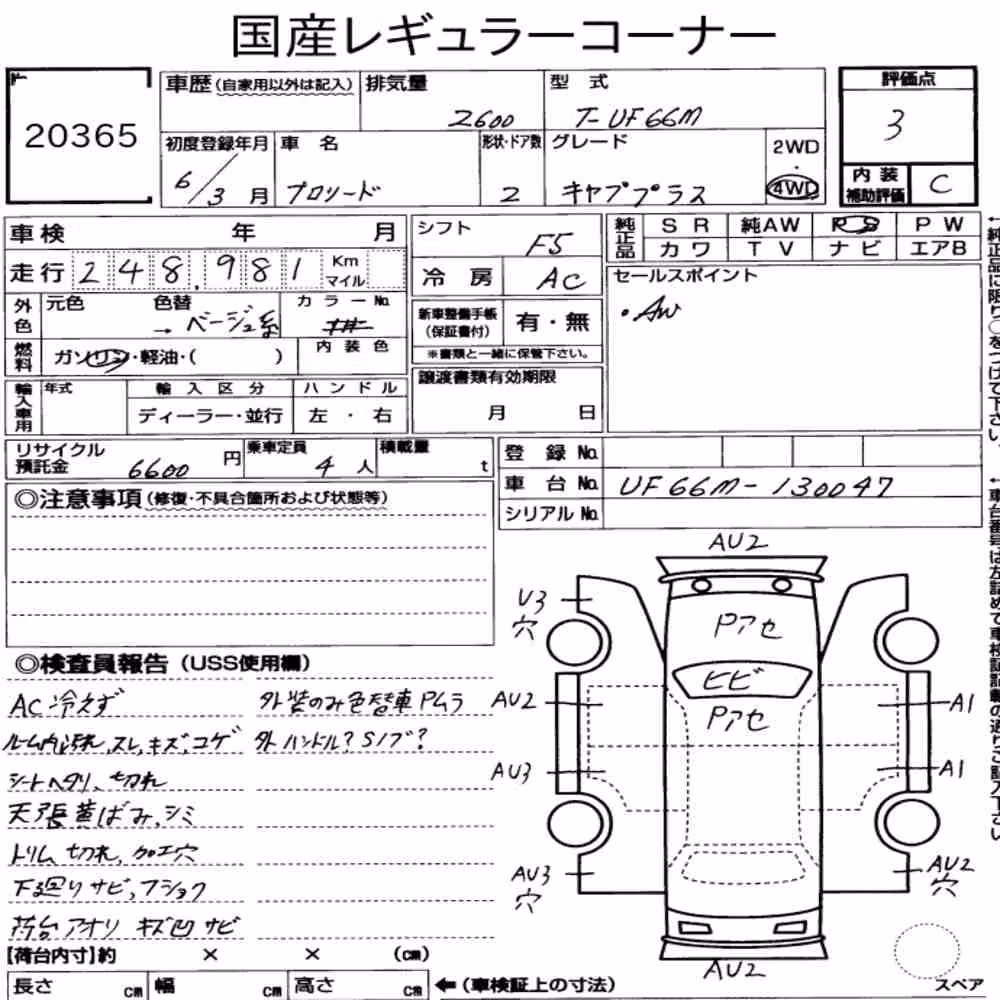 国産レギュラーコーナー
20365
車歴 (自家用以外は記入)
排気量
2600
型 式
T-UF66M
評価点
3
初度登録年月
6/3月
車 名
プロシード
形状・ドア数
2
グレード
キャブプラス
2WD
・
4WD
内装
補助評価
C
車検 年 月
走行 248,981 Km マイル
シフト
F5
冷房
AC
純正品
SR 純AW PS PW
カワ TV ナビ エアB
セールスポイント
・AW
外色
元色 色替
→ ベージュ系
カラーNo.
燃料
ガソリン・軽油・( )
内装色
新車整備手帳
(保証書付)
有・無
※書類と一緒に保管下さい。
輸入車用
年式
輸入区分
ディーラー・並行
ハンドル
左・右
譲渡書類有効期限
月 日
リサイクル
預託金
6600円
乗車定員
4人
積載量
t
登録No.
車台No. UF66M-130047
シリアルNo.
◎注意事項 (修復・不具合箇所および状態等)
◎検査員報告 (USS使用欄)
AC冷えず
ルーム内汚れ、スレ、キズ、コゲ
シートヘタリ、切れ
天張黄ばみ、シミ
トリム切れ、加工穴
下廻りサビ、フショク
荷台アオリ キズ凹サビ
外装のみ色替車 Pムラ
外ハンドル?Sノブ?
【荷台内寸】約 × × (cm)
長さ cm 幅 cm 高さ cm
←(車検証上の寸法)
AU2
U3
穴
Pアセ
ヒビ
Pアセ
AU2
A1
AU3
A1
AU3
穴
AU2
穴
AU2
スペア
←純正品に限り○をつけて下さい。
←車台番号は左詰めで車検証記載の通りご記入下さい